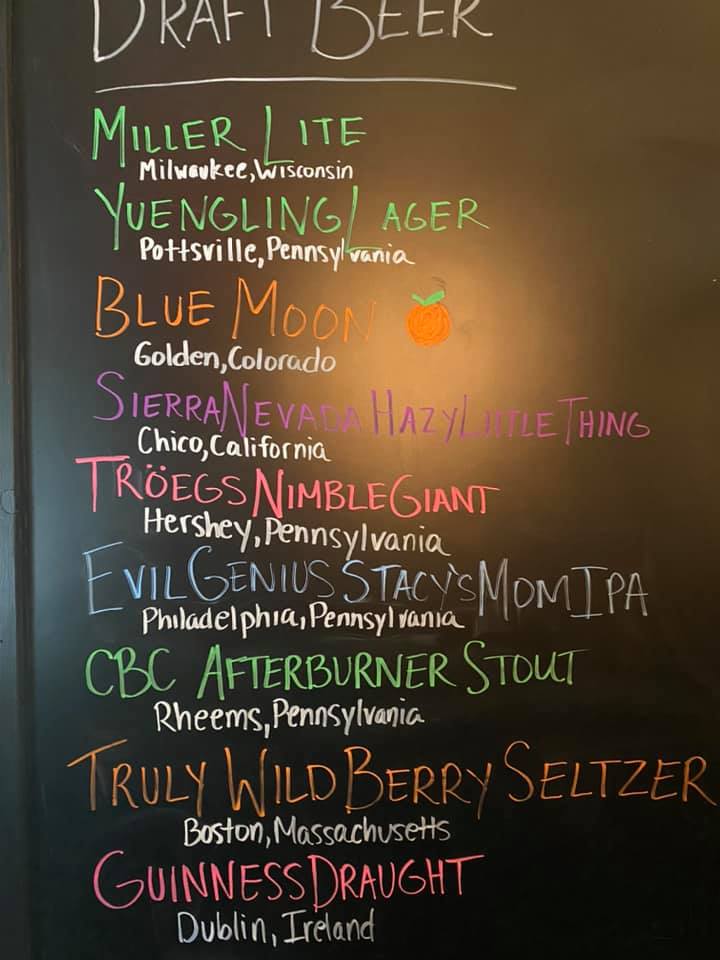 DRAFT BEER
MILLER LITE
Milwaukee, Wisconsin
YUENGLING LAGER
Pottsville, Pennsylvania
BLUE MOON
Golden, Colorado
SIERRA NEVADA HAZY LITTLE THING
Chico, California
TRÖEGS NIMBLE GIANT
Hershey, Pennsylvania
EVIL GENIUS STACY'S MOM IPA
Philadelphia, Pennsylvania
CBC AFTERBURNER STOUT
Rheems, Pennsylvania
TRULY WILD BERRY SELTZER
Boston, Massachusetts
GUINNESS DRAUGHT
Dublin, Ireland